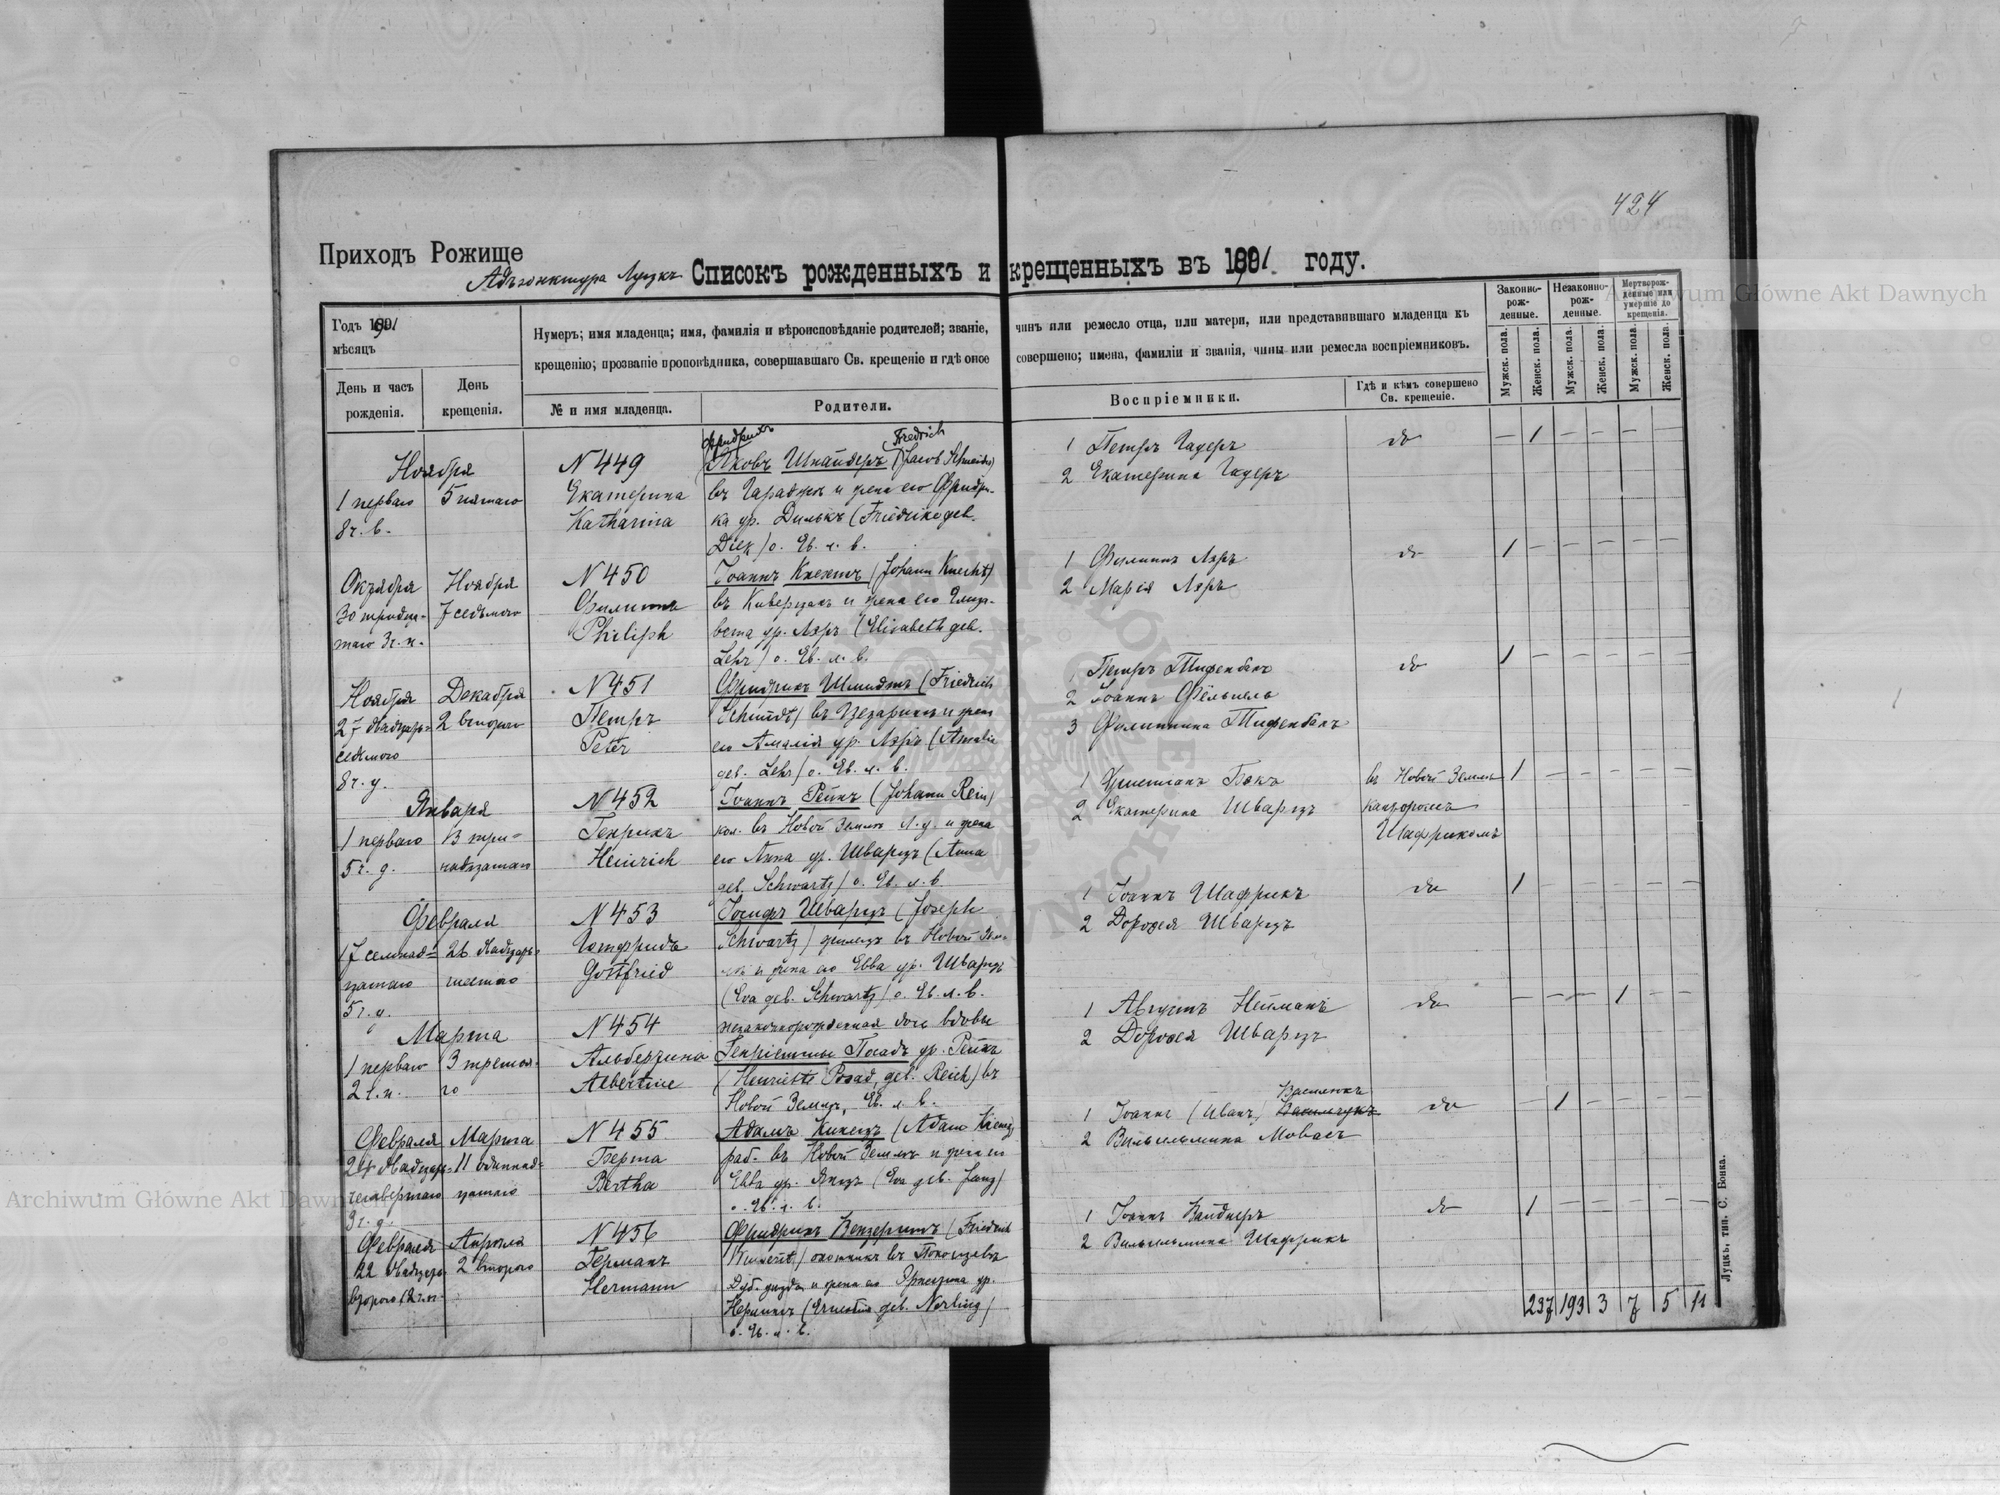 424
Приходъ Рожище
Адъюнктура Луцкъ
Списокъ рожденныхъ и крещенныхъ въ 1891 году.
Годъ 1891
мѣсяцъ
День и часъ рожденія.
День крещенія.
Нумеръ; имя младенца; имя, фамилія и вѣроисповѣданіе родителей; званіе, чинъ или ремесло отца, или матери, или представившаго младенца къ
крещенію; прозваніе проповѣдника, совершавшаго Св. крещеніе и гдѣ оное совершено; имена, фамиліи и званія, чины или ремесла воспріемниковъ.
№ и имя младенца.
Родители.
Воспріемники.
Гдѣ и кѣмъ совершено Св. крещеніе.
Законно-рож-денные.
Незаконно-рож-денные.
Мертворож-денные или умершіе до крещенія.
Мужск. пола.
Женск. пола.
Мужск. пола.
Женск. пола.
Мужск. пола.
Женск. пола.
Ноября
1 перваго
8 ч. в.
5 пятаго
N 449
Екатерина
Katharina
Фридрихъ Fredrich
Яковъ Шнайдеръ (Jacob Schneider)
въ Гараджѣ и жена его Фридри-
ка ур. Дилькъ (Friedrike geb.
Diek) о. Ев. л. в.
1 Петръ Гадеръ
2 Екатерина Гадеръ
do
— 1 — — — —
Октября
30 тридца-
таго 3 ч. н.
Ноября
7 седьмого
N 450
Филиппъ
Philiph
Іоаннъ Кнехтъ (Johann Knecht)
въ Киверцахъ и жена его Елиза-
вета ур. Лэръ (Elisabeth geb.
Lehr) о. Ев. л. в.
1 Филиппъ Лэръ
2 Марія Лэръ
do
1 — — — — —
Ноября
27 двадцать
седьмого
8 ч. у.
Декабря
2 второго
N 451
Петръ
Peter
Фридрихъ Шмидтъ (Friedrich
Schmidt) въ Цезаринѣ и жена
его Амалія ур. Лэръ (Amalie
geb. Lehr) о. Ев. л. в.
1 Петръ Тифенбахъ
2 Іоаннъ Фёльпель
3 Филиппина Тифенбахъ
do
1 — — — — —
Января
1 перваго
5 ч. д.
13 три-
надцатаго
N 452
Генрихъ
Heinrich
Іоаннъ Рейнъ (Johann Rein)
кол. въ Новой Землѣ Л. у. и жена
его Анна ур. Шварцъ (Anna
geb. Schwartz) о. Ев. л. в.
1 Христіанъ Бокъ
2 Екатерина Шварцъ
въ Новой Землѣ
канторомъ
Шафрикомъ
1 — — — — —
Февраля
17 семнад-
цатаго
5 ч. у.
26 двадцать
шестого
N 453
Готфридъ
Gottfried
Іосифъ Шварцъ (Joseph
Schwartz) въ Новой Зем-
лѣ и жена его Евва ур. Шварцъ
(Eva geb. Schwartz) о. Ев. л. в.
1 Іоаннъ Шафрикъ
2 Дорофея Шварцъ
do
1 — — — — —
Марта
1 перваго
2 ч. н.
3 третья-
го
N 454
Альбертина
Albertine
незаконнорожденная дочь вдовы
Генріетты Посадъ ур. Рейхъ
(Henriette Posad, geb. Reich) въ
Новой Землѣ, Ев. л. в.
1 Августъ Нейманъ
2 Дорофея Шварцъ
do
— — — 1 — —
Февраля
24 двадцать
четвертаго
9 ч. д.
Марта
11 одиннад-
цатаго
N 455
Берта
Bertha
Адамъ Кинецъ (Adam Kienez)
раб. въ Новой Землѣ и жена его
Евва ур. Янцъ (Eva geb. Janz)
о. Ев. л. в.
Василюкъ
1 Іоаннъ (Иванъ) Васильчукъ
2 Вильгельмина Мовасъ
do
— 1 — — — —
Февраля
22 двадцать
второго 12 ч. н.
Апрѣля
2 второго
N 456
Германъ
Hermann
Фридрихъ (Friedrich
охотникъ въ
Дуб. уѣзда и жена его Эрнестина ур.
Нерлингъ (Ernestine geb. Nerling)
о. Ев. л. в.
1 Іоаннъ Вайднеръ
2 Вильгельмина Шафрикъ
do
1 — — — — —
237 193 3 7 5 11
Луцкъ, тип. С. Бонка.
Archiwum Główne Akt Dawnych
Archiwum Główne Akt Dawnych